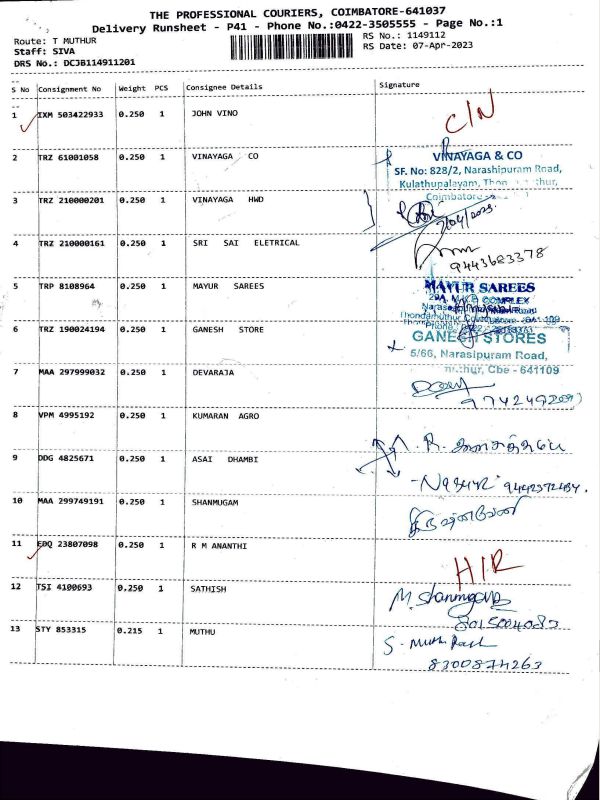 THE PROFESSIONAL COURIERS, COIMBATORE-641037
Delivery Runsheet - P41 - Phone No.:0422-3505555 - Page No.:1
Route: T MUTHUR
Staff: SIVA
DRS No.: DCJB114911201
RS No.: 1149112
RS Date: 07-Apr-2023
S No Consignment No Weight PCS Consignee Details Signature
1 IXM 503422933 0.250 1 JOHN VINO C/N
2 TRZ 61001058 0.250 1 VINAYAGA CO
VINAYAGA & CO
SF. No: 828/2, Narashipuram Road,
Kulathupalayam,
Coimbatore
3 TRZ 210000201 0.250 1 VINAYAGA HWD
4 TRZ 210000161 0.250 1 SRI SAI ELETRICAL
9443683378
5 TRP 8108964 0.250 1 MAYUR SAREES
MAYUR SAREES
COMPLEX
6 TRZ 190024194 0.250 1 GANESH STORE
GANESH STORES
5/66, Narasipuram Road,
Cbe - 641109
7 MAA 297999032 0.250 1 DEVARAJA
8 VPM 4995192 0.250 1 KUMARAN AGRO
9 DDG 4825671 0.250 1 ASAI DHAMBI
10 MAA 299749191 0.250 1 SHANMUGAM
11 EDQ 23807098 0.250 1 R M ANANTHI
12 TSI 4100693 0.250 1 SATHISH
8015004083
13 STY 853315 0.215 1 MUTHU
8300874263